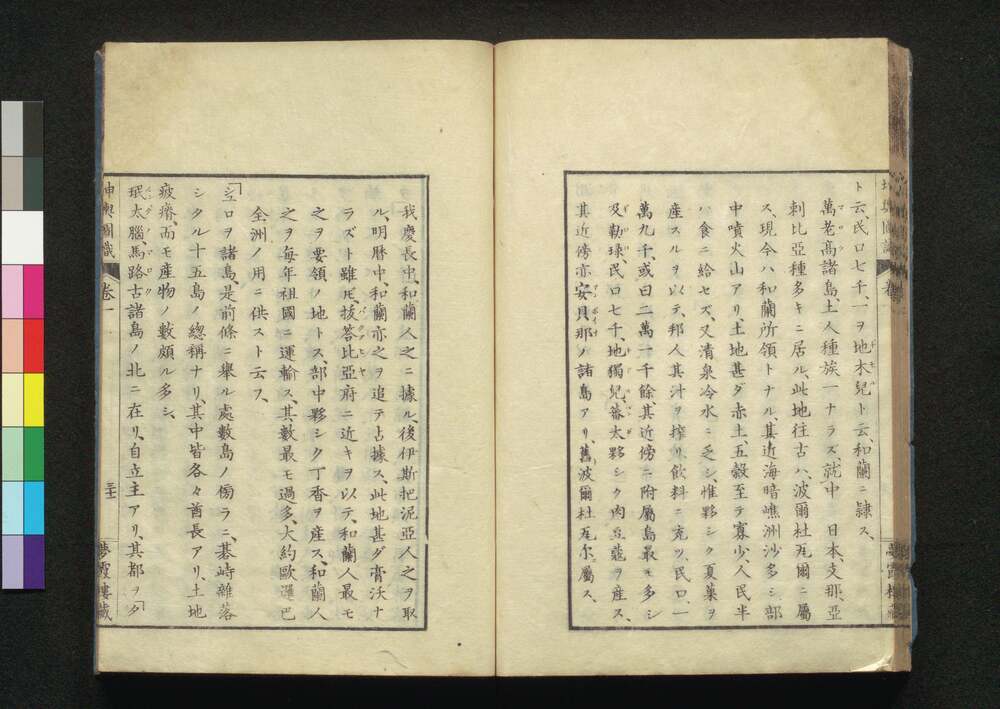 ト云、民口七千、一ヲ地木兒ト云、和蘭ニ隷ス、
萬老髙諸島、土人種族一ナラズ、就中 日本、支那、亞
刺比亞種多キニ居ル、此地往古ハ、波爾杜瓦爾ニ屬
ス、現今ハ和蘭所領トナル、其近海暗礁洲沙多シ、部
中噴火山アリ、土地甚ダ赤土、五穀至テ寡少、人民半
ハ食ニ給セズ、又清泉冷水ニ乏シ、惟夥シク夏菓ヲ
産スルヲ以テ、邦人其汁ヲ搾リ飲料ニ充ツ、民口、一
萬九千、或曰二萬一千餘、其近傍ニ附屬島最モ多シ
及勒琜、民口七千、地獨兒蕃太夥シク肉豆蔲ヲ産ス、
其近傍亦安貝那ノ諸島アリ、舊波爾杜瓦尓屬ス、
我慶長中、和蘭人之ニ據ル、後伊斯把泥亞人之ヲ取
ル、明暦中、和蘭亦之ヲ追テ占據ス、此地甚ダ膏沃ナ
ラズト雖𪜈、拔答比亞府ニ近キヲ以テ、和蘭人最モ
之ヲ要領ノ地トス、部中夥シク丁香ヲ産ス、和蘭人
之ヲ毎年祖國ニ運輸ス、其數最モ過多、大約歐邏巴
全洲ノ用ニ供スト云フ、
「シロヲ諸島、是前條ニ舉ル處數島ノ傍ラニ、碁峙雜落
シタル十五島ノ總稱ナリ、其中皆各々酋長アリ、土地
疲瘠、而モ産物ノ數頗ル多シ、
珉太腦、馬路古諸島ノ北ニ在リ、自立主アリ、其都ヲ「タ
坤輿圖識
卷一
夢霞樓藏